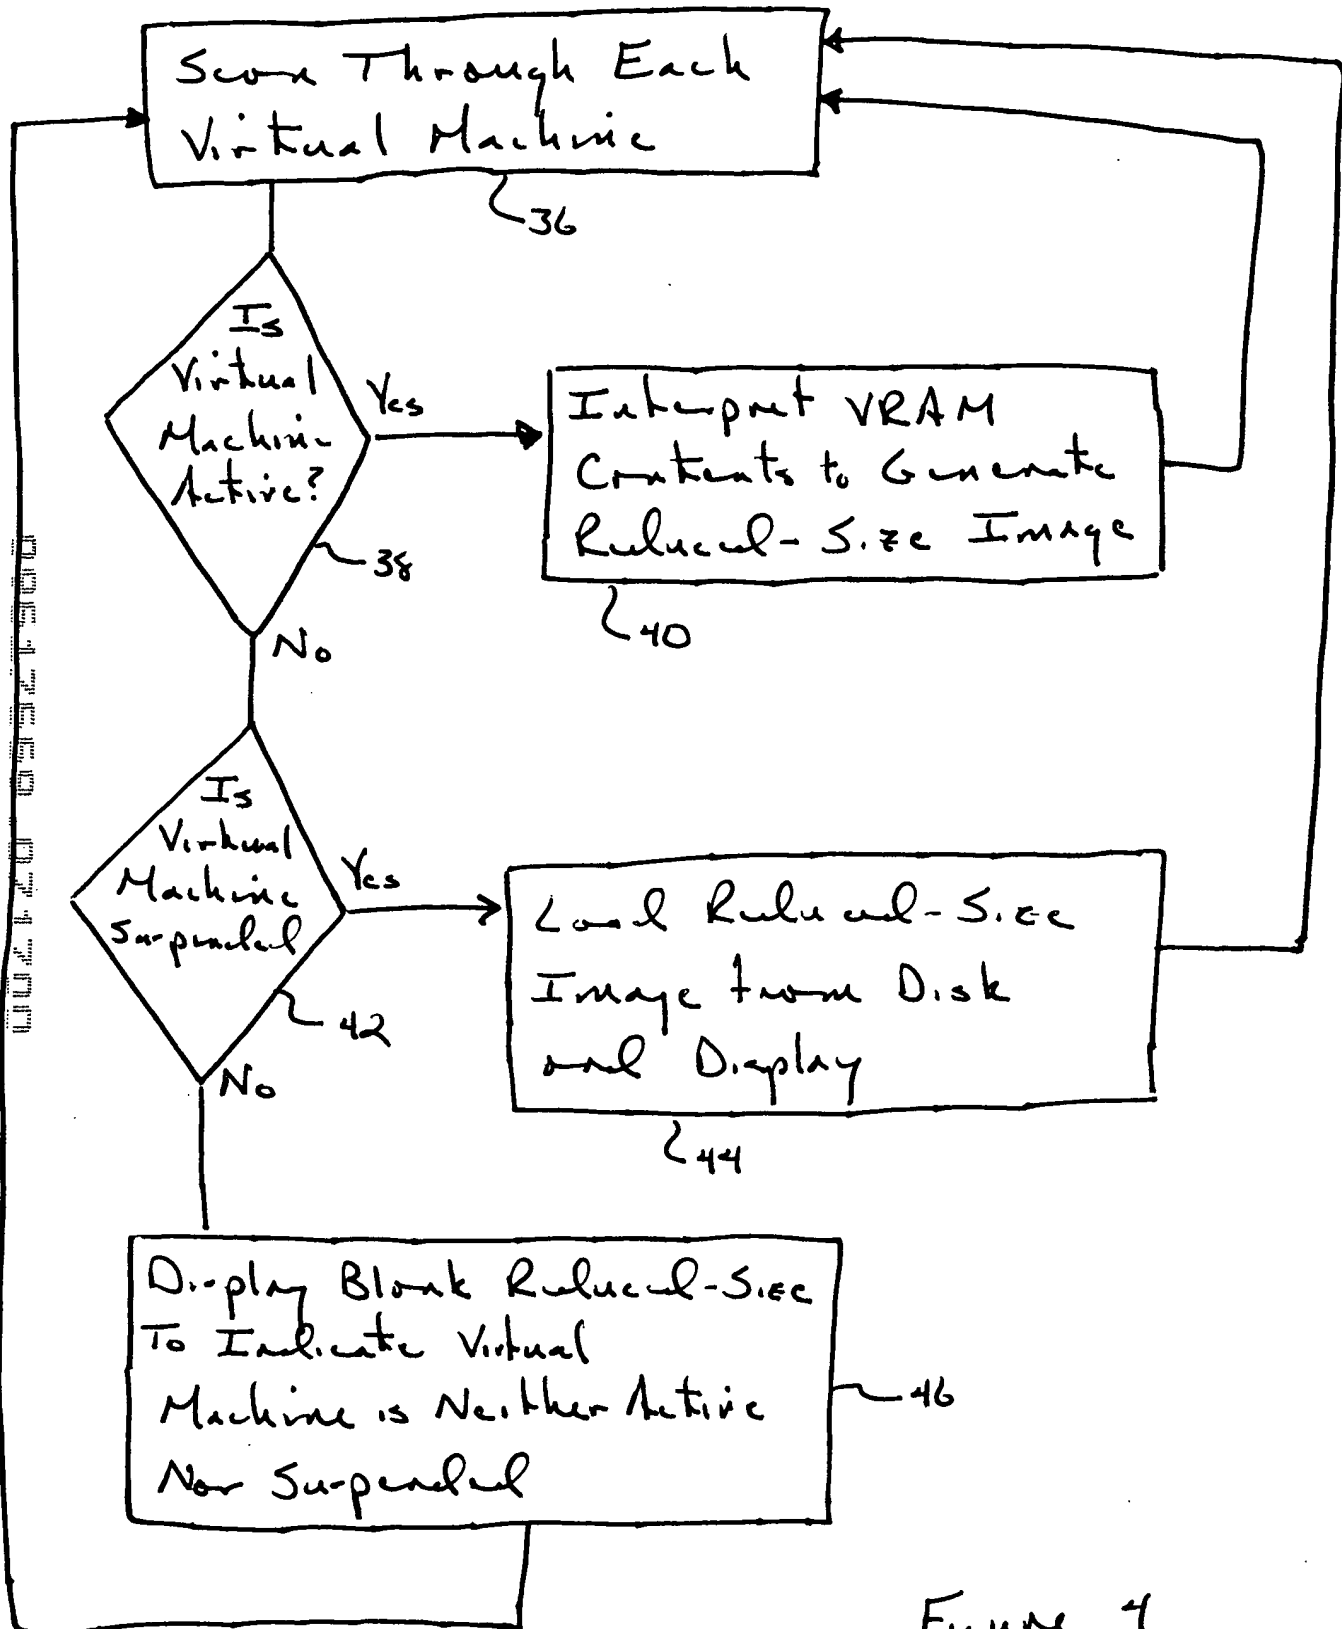 Scan Through Each
Virtual Machine
36
Is
Virtual
Machine
Active?
Yes
38
No
Interpret VRAM
Contents to Generate
Reduced-Size Image
40
Is
Virtual
Machine
Suspended
Yes
42
No
Load Reduced-Size
Image from Disk
and Display
44
Display Blank Reduced-Size
To Indicate Virtual
Machine is Neither Active
Nor Suspended
46
Figure 4